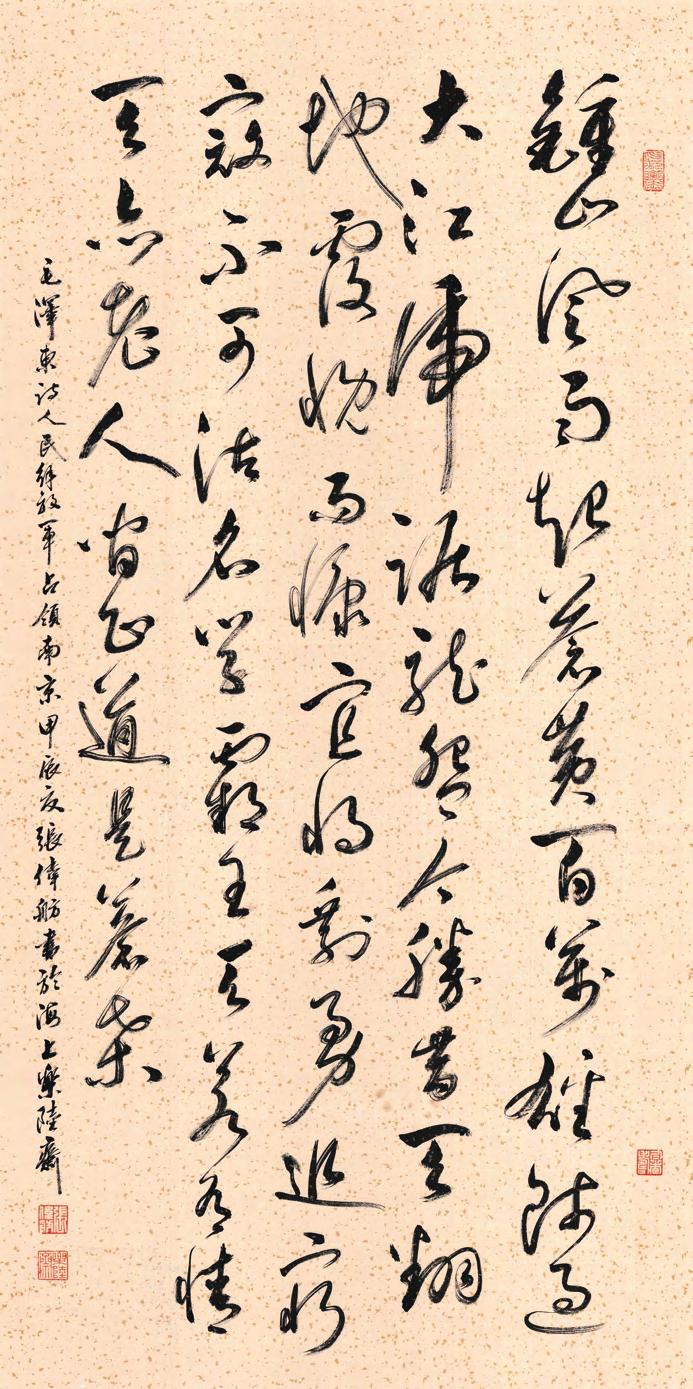 鍾山風雨起蒼黃百萬雄師過
大江虎踞龍盤今勝昔天翻
地覆慨而慷宜將剩勇追窮
寇不可沽名學霸王天若有情
天亦老人間正道是蒼桑
毛澤東詩人民解放軍占領南京甲辰夏張偉舫書於海上樂陸齋